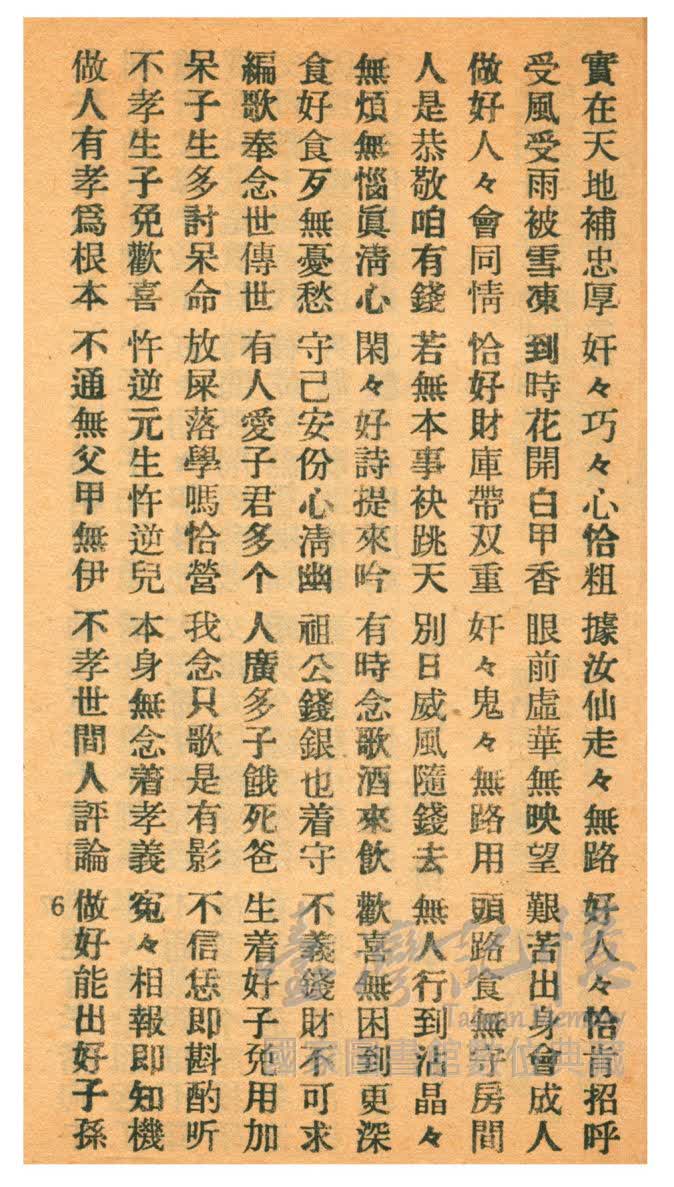 實在天地補忠厚 奸々巧々心恰粗 據汝仙走々無路 好人々恰肯招呼
受風受雨被雪凍 到時花開白甲香 眼前虛華無映望 艱苦出身會成人
做好人々會同情 恰好財庫帶双重 奸々鬼々無路用 頭路食無守房間
人是恭敬咱有錢 若無本事袂跳天 別日威風隨錢去 無人行到沾晶々
無煩無惱眞淸心 閑々好詩提來吟 有時念歌酒來飮 歡喜無困到更深
食好食歹無憂愁 守己安份心淸幽 祖公錢銀也着守 不義錢財不可求
編歌奉念世傳世 有人愛子君多个 人廣多子餓死爸 生着好子免用加
呆子生多討呆命 放屎落學嗎恰營 我念只歌是有影 不信恁即斟酌听
不孝生子免歡喜 忤逆元生忤逆兒 本身無念着孝義 寃々相報即知機
做人有孝爲根本 不通無父甲無伊 不孝世間人評論 做好能出好子孫
6
臺灣記憶
Taiwan Memory
國家圖書館數位典藏